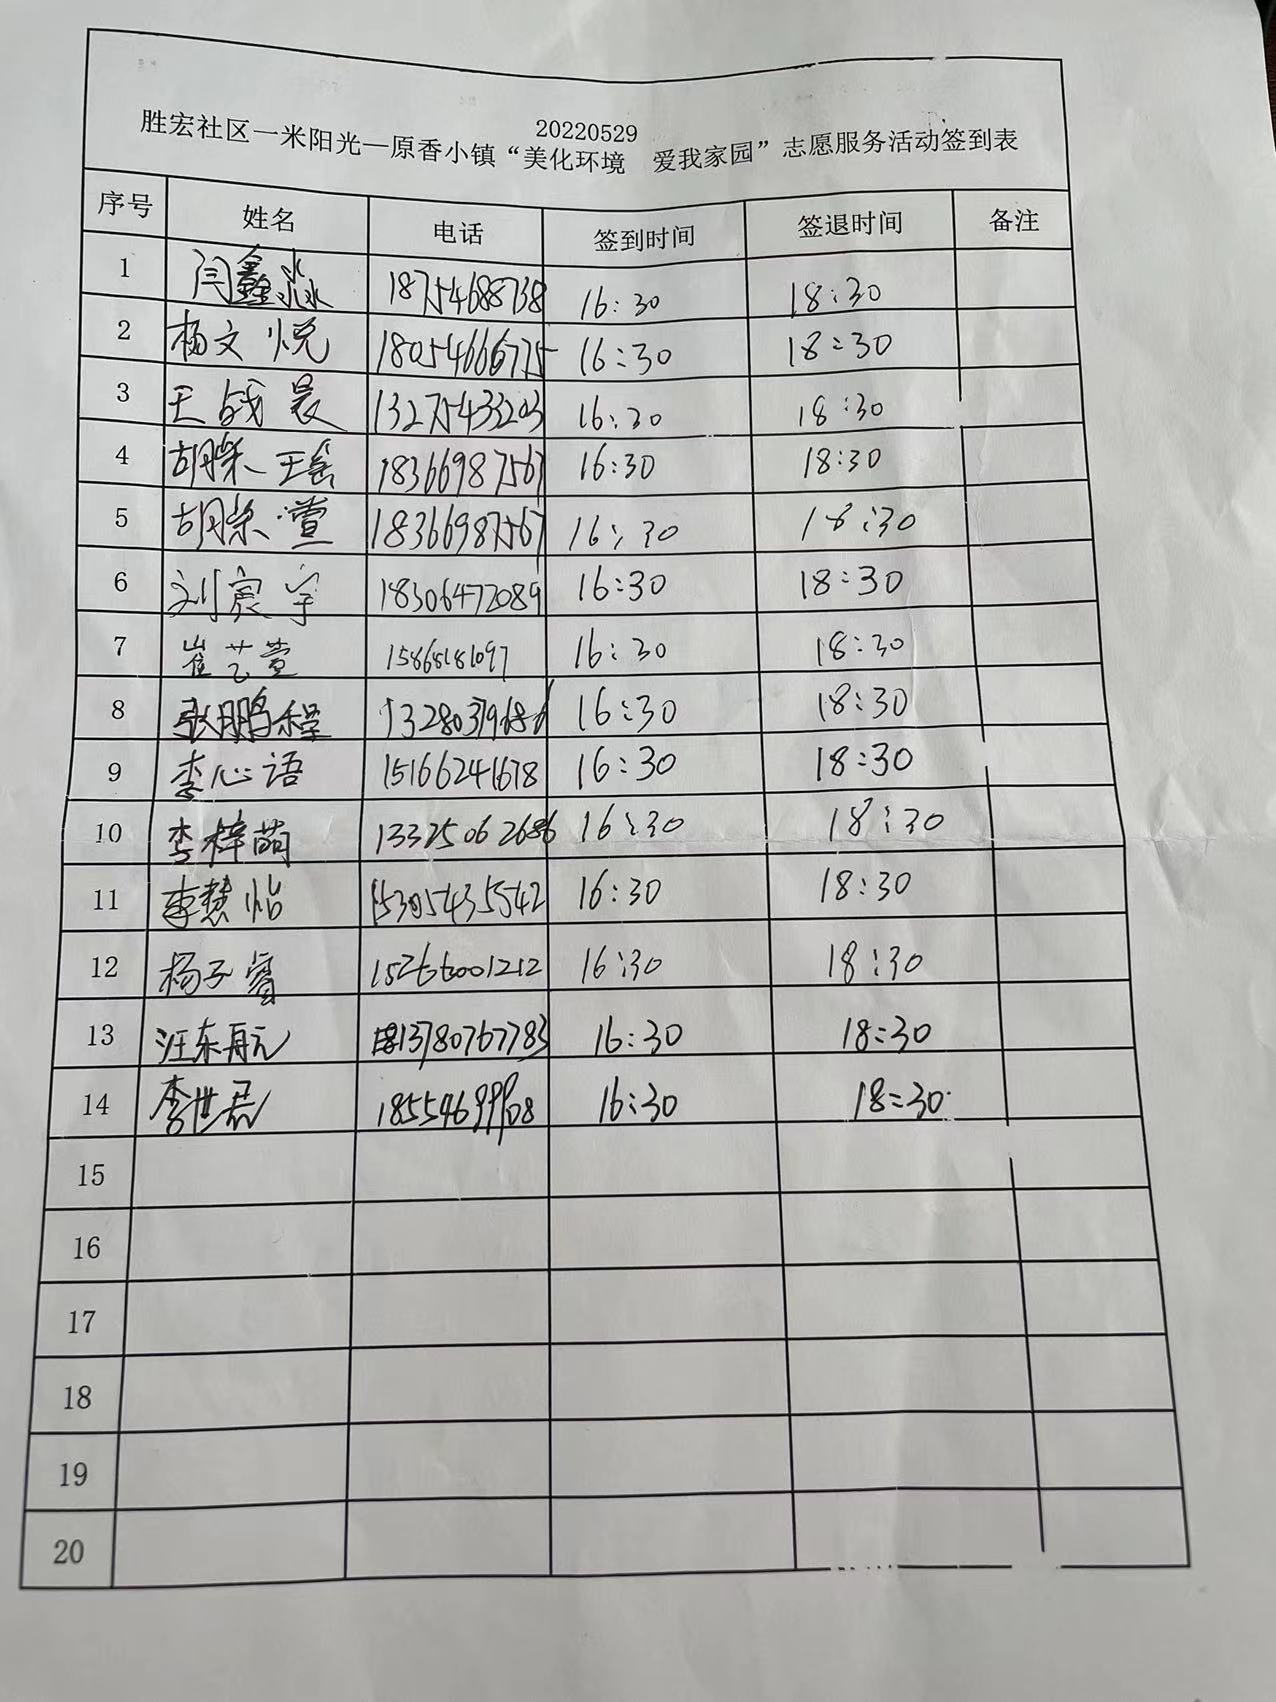 20220529
胜宏社区一米阳光—原香小镇“美化环境 爱我家园”志愿服务活动签到表
序号 姓名 电话 签到时间 签退时间 备注
1 闫鑫淼 18754688738 16:30 18:30
2 杨文悦 18054666775 16:30 18:30
3 王战晨 13275433203 16:30 18:30
4 胡荣王 18366987567 16:30 18:30
5 胡荣萱 18366987567 16:30 18:30
6 刘宸宇 18306472089 16:30 18:30
7 崔艺萱 16:30 18:30
8 张鹏程 16:30 18:30
9 李心语 15166241678 16:30 18:30
10 李梓萌 13325062686 16:30 18:30
11 李慧怡 15305435542 16:30 18:30
12 杨子睿 15266001212 16:30 18:30
13 汪东航 13780767783 16:30 18:30
14 李世君 18554699908 16:30 18:30
15
16
17
18
19
20